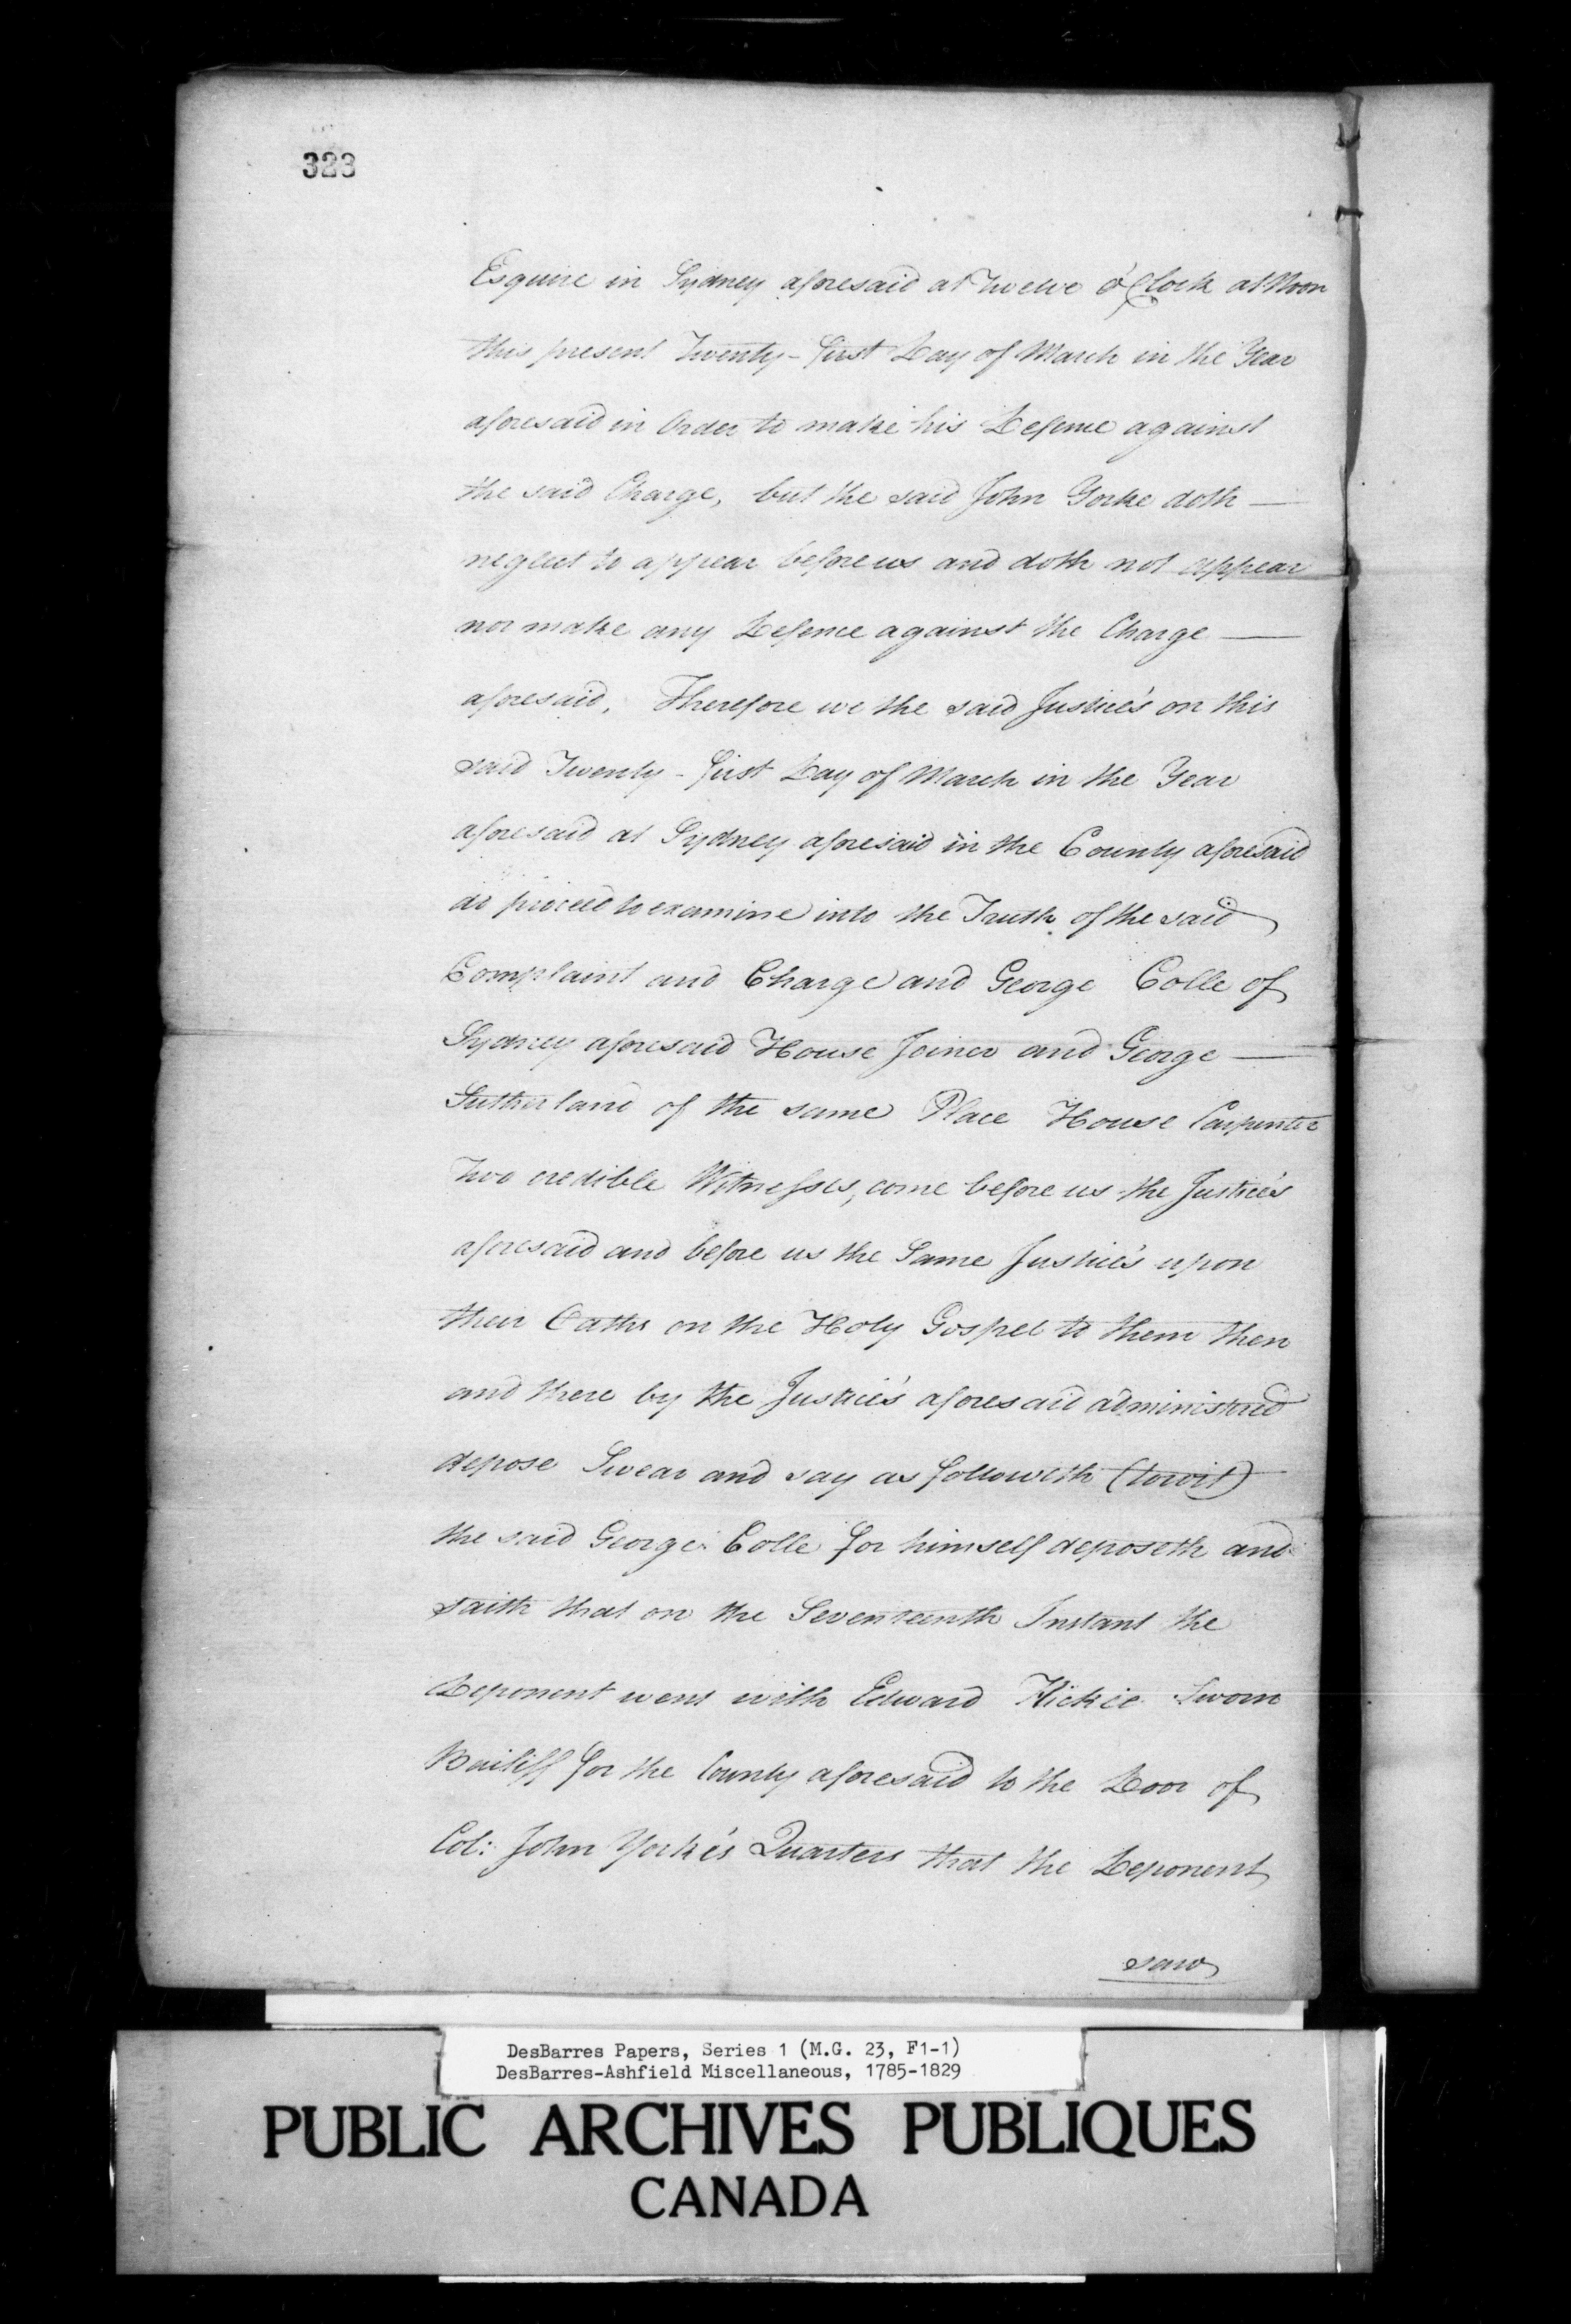 323
Esquire in Sydney aforesaid at Twelve o'Clock at Noon
this present Twenty-first Day of March in the Year
aforesaid in Order to make his Defence against
the said Charge, but the said John Yorke doth —
neglect to appear before us and doth not appear
nor make any Defence against the Charge —
aforesaid, Therefore we the said Justice's on this
said Twenty-first Day of March in the Year
aforesaid at Sydney aforesaid in the County aforesaid
do proceed to examine into the Truth of the said
Complaint and Charge and George Colle of
Sydney aforesaid House Joiner and George —
Sutherland of the same Place House Carpenter
Two credible Witnesses, come before us the Justice's
aforesaid and before us the Same Justice's upon
their Oaths on the Holy Gospel to them then
and there by the Justice's aforesaid administered
depose Swear and say as followeth (towit)
the said George Colle for himself deposeth and
saith that on the Seventeenth Instant the
Deponent went with Edward Hickie Sworn
Bailiff for the County aforesaid to the Door of
Col: John Yorke's Quarters that the Deponent
saw
DesBarres Papers, Series 1 (M.G. 23, F1-1)
DesBarres-Ashfield Miscellaneous, 1785-1829
PUBLIC ARCHIVES PUBLIQUES
CANADA